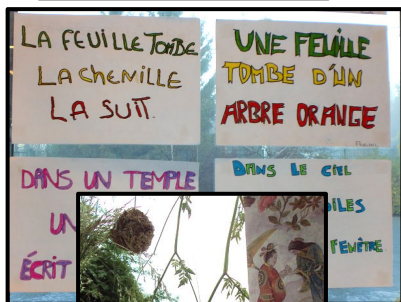 LA FEUILLE TOMBE
LA CHENILLE
LA SUIT.
UNE FEUILLE
TOMBE D'UN
ARBRE ORANGE
DANS UN TEMPLE
UN
ÉCRIT
DANS LE CIEL
FENÊTRE